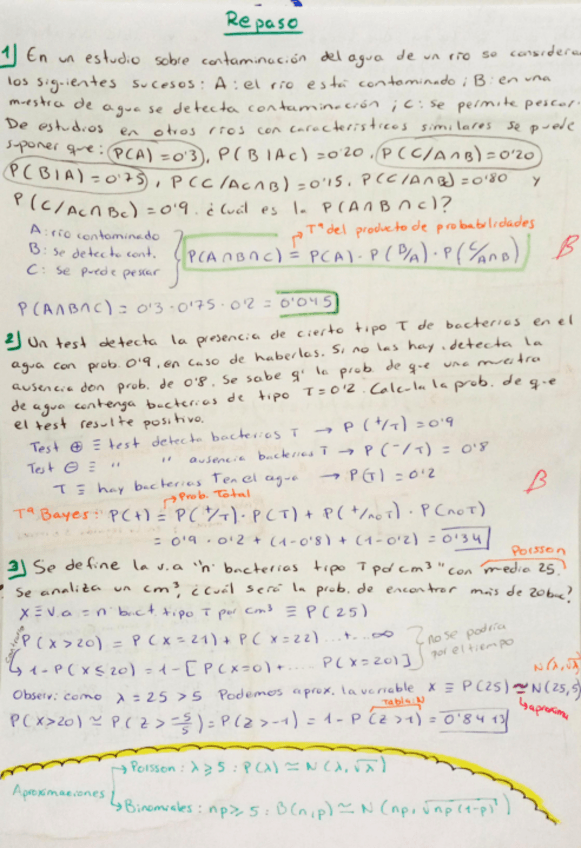 Repaso
1) En un estudio sobre contaminación del agua de un río se consideran
los siguientes sucesos: A: el río está contaminado; B: en una
muestra de agua se detecta contaminación; C: se permite pescar.
De estudios en otros ríos con características similares se puede
suponer que: P(A)=0'3, P(B|Ac)=0'20, P(C/A∩B)=0'20
P(B|A)=0'75, P(C/Ac∩B)=0'15, P(C/A∩Bc)=0'80 y
P(C/Ac∩Bc)=0'9. ¿Cuál es la P(A∩B∩C)?
A: río contaminado
B: se detecta cont.
C: se puede pescar
Tª del producto de probabilidades
P(A∩B∩C) = P(A) · P(B/A) · P(C/A∩B)
B
P(A∩B∩C) = 0'3 · 0'75 · 0'2 = 0'045
2) Un test detecta la presencia de cierto tipo T de bacterias en el
agua con prob. 0'9, en caso de haberlas. Si no las hay, detecta la
ausencia don prob. de 0'8. Se sabe q' la prob. de que una muestra
de agua contenga bacterias de tipo T=0'2. Calcula la prob. de que
el test resulte positivo.
Test ⊕ ≡ test detecta bacterias T → P(+/T) = 0'9
Test ⊖ ≡ " " ausencia bacterias T → P(-/T) = 0'8
T ≡ hay bacterias T en el agua → P(T) = 0'2
Prob. Total
B
Tª Bayes: P(+) = P(+/T) · P(T) + P(+/no T) · P(no T)
= 0'9 · 0'2 + (1-0'8) + (1-0'2) = 0'34
Poisson
3) Se define la v.a "nº bacterias tipo T por cm³" con media 25.
Se analiza un cm³, ¿cuál será la prob. de encontrar más de 20 bac?
X ≡ v.a = nº bact. tipo T por cm³ ≡ P(25)
P(X>20) = P(X=21) + P(X=22) ...+..∞
no se podría
por el tiempo
contrario
1-P(X≤20) = 1-[P(X=0)+.... P(X=20)]
N(λ,√λ)
Observ: como λ = 25 > 5 Podemos aprox. la variable X ≡ P(25) ≃ N(25,5)
aproxima
tabla N
P(X>20) ≃ P(Z > -5/5) = P(Z>-1) = 1-P(Z>1) = 0'8413
Aproximaciones
Poisson: λ≥5: P(λ) ≃ N(λ,√λ)
Binomiales: np≥5: B(n,p) ≃ N(np, √np(1-p))